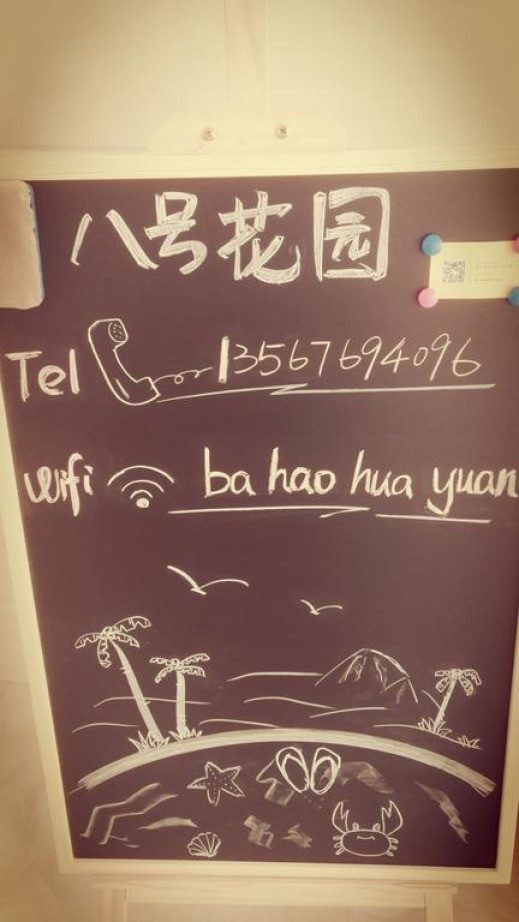 八号花园
Tel 13567694096
Wifi ba hao hua yuan